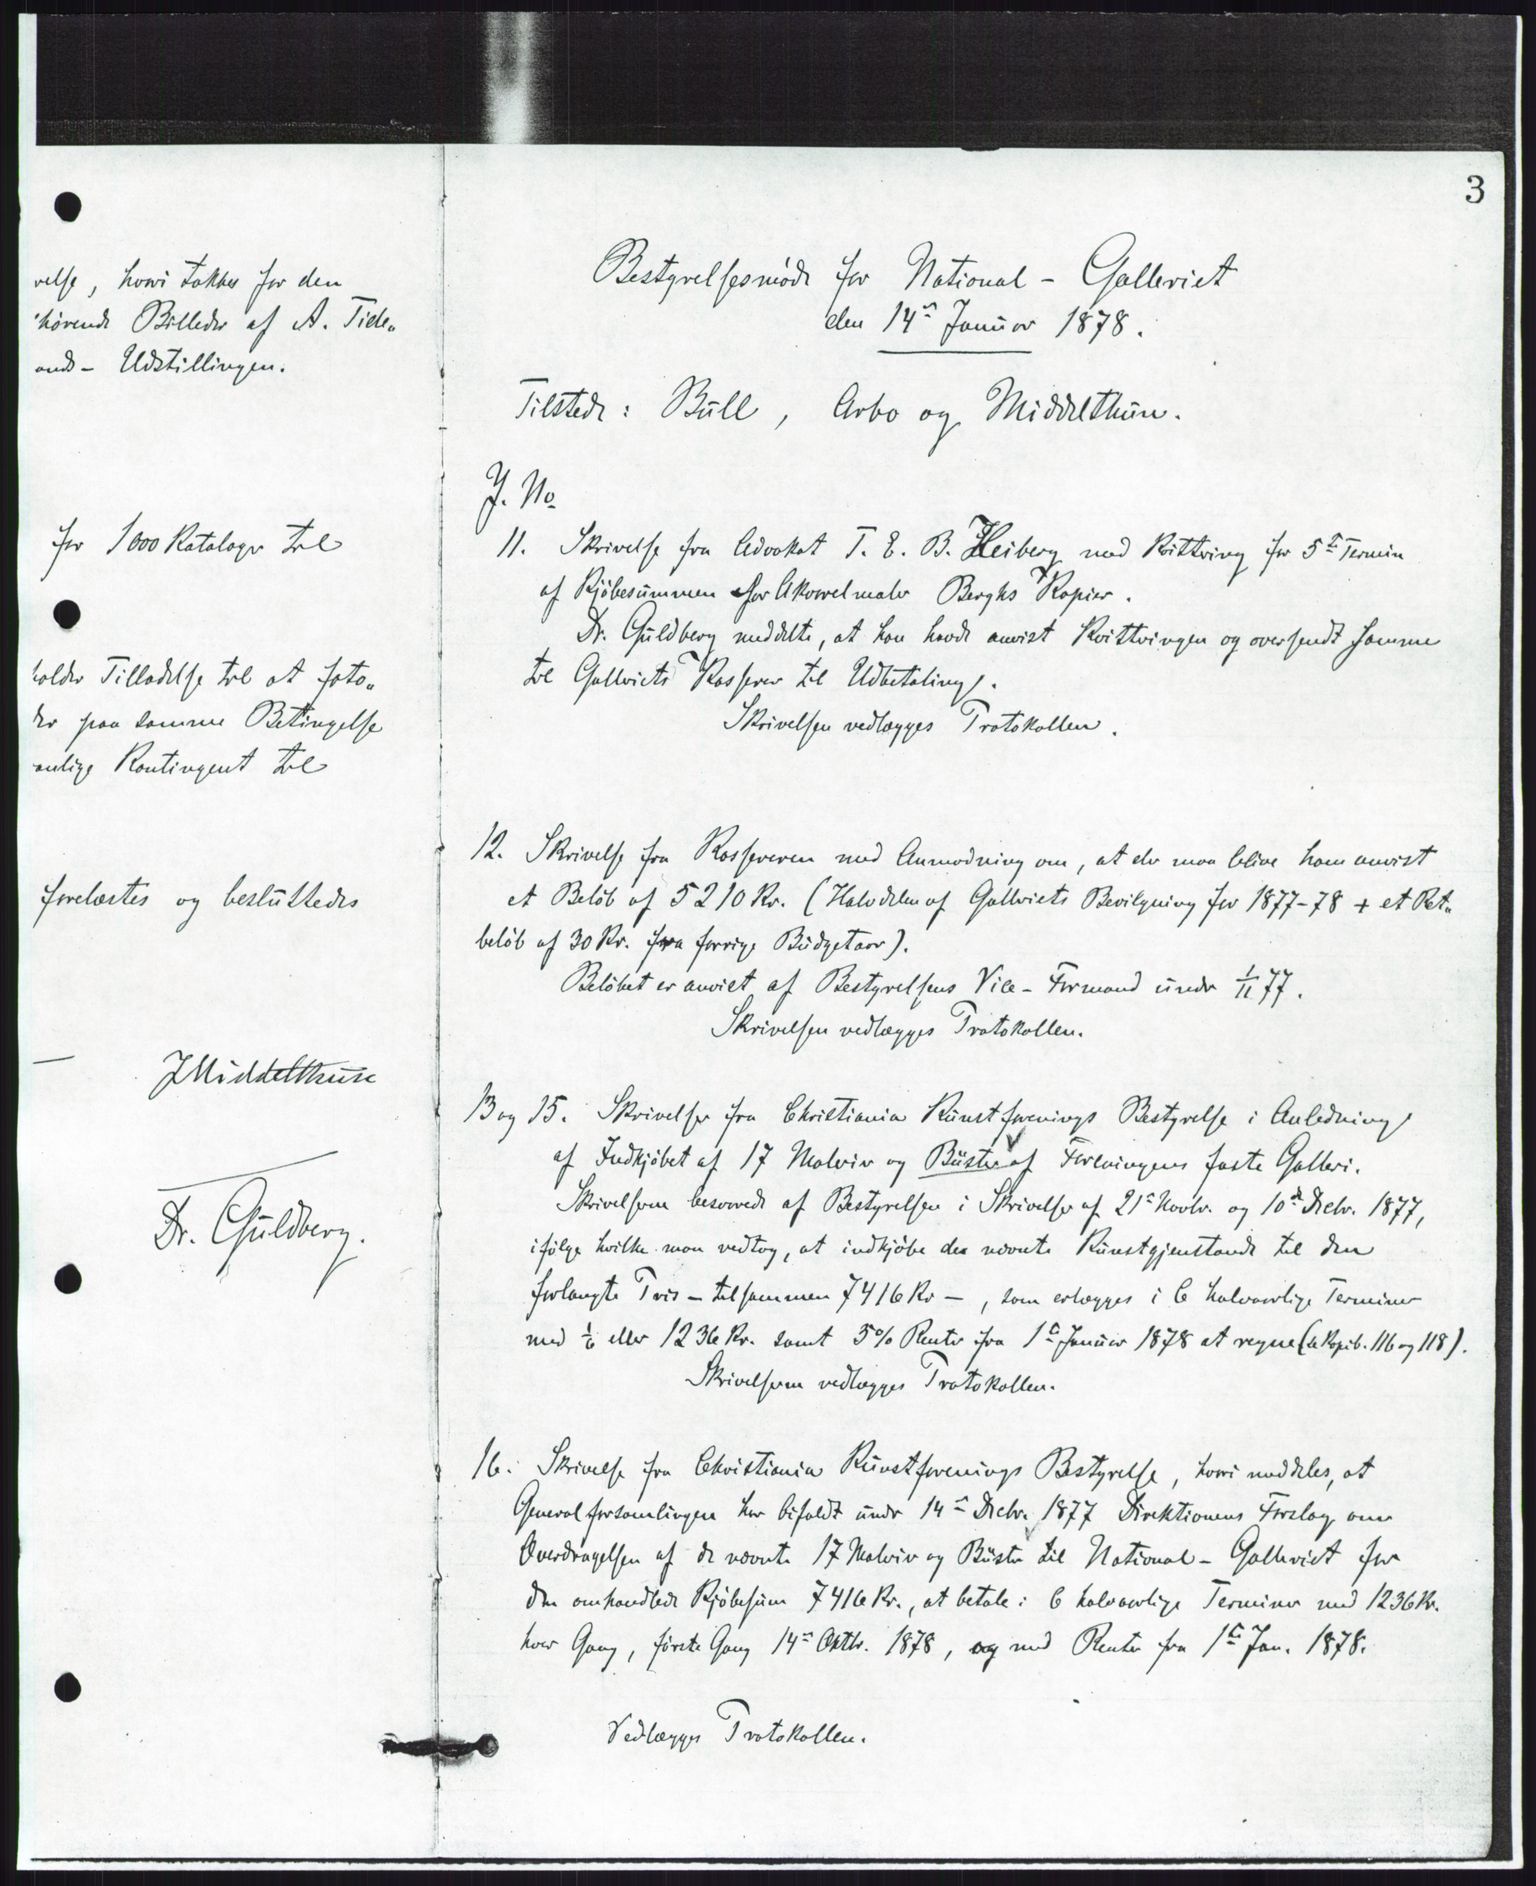 3
velse, hvori takkes for den
hörende Billeder af A. Tide„
ands- Udstillingen.
for 1000 Kataloger til
holder Tilladelse til at foto„
der paa samme Betingelse
anlige Kontingent til
forelæstes og besluttedes
JMiddelthun
Dr. Guldberg.
Bestyrelsesmöde for National-Galleriet
den 14de Januar 1878.
Tilstede: Bull, Arbo og Middelthun.
J. No
11. Skrivelse fra Advokat T. E. B. Heiberg med Kvittering for 5te Termin
af Kjöbesummen for Akvarelmaler Berghs Kopier.
Dr. Guldberg meddelte, at han havde anvist Kvitteringen og oversendt samme
til Galleriets Kasserer til Udbetaling.
Skrivelsen vedlægges Protokollen.
12. Skrivelse fra Kassereren med Anmodning om, at der maa blive ham anvist
et Belöb af 5210 Kr. (Halvdelen af Galleriets Bevilgning for 1877-78 + et Rest„
belöb af 30 Kr. fra forrige Budgetaar).
Belöbet er anvist af Bestyrelsens Vice-Formand under 1/11 77.
Skrivelsen vedlægges Protokollen.
13 og 15. Skrivelser fra Christiania Kunstforenings Bestyrelse i Anledning
af Indkjöbet af 17 Malerier og Büster af Foreningens faste Galleri.
Skrivelserne besvarede af Bestyrelsen i Skrivelser af 21de Novbr. og 10de Decbr. 1877,
ifölge hvilke man vedtog, at indkjöbe de nævnte Kunstgjenstande til den
forlangte Pris - tilsammen 7416 Kr -, som erlægges i 6 halvaarlige Terminer
med 1/6 eller 1236 Kr. samt 5% Renter fra 1ste Januar 1878 at regne (se Kopib. 116 og 118).
Skrivelserne vedlægges Protokollen.
16. Skrivelse fra Christiania Kunstforenings Bestyrelse, hvori meddeles, at
Generalforsamlingen har bifaldt under 14de Decbr. 1877 Direktionens Forslag om
Overdragelsen af de nævnte 17 Malerier og Büster til National-Galleriet for
den omhandlede Kjöbesum 7416 Kr., at betale i 6 halvaarlige Terminer med 1236 Kr.
hver Gang, förste Gang 14de Oktbr. 1878, og med Renter fra 1ste Jan. 1878.
Vedlægges Protokollen.